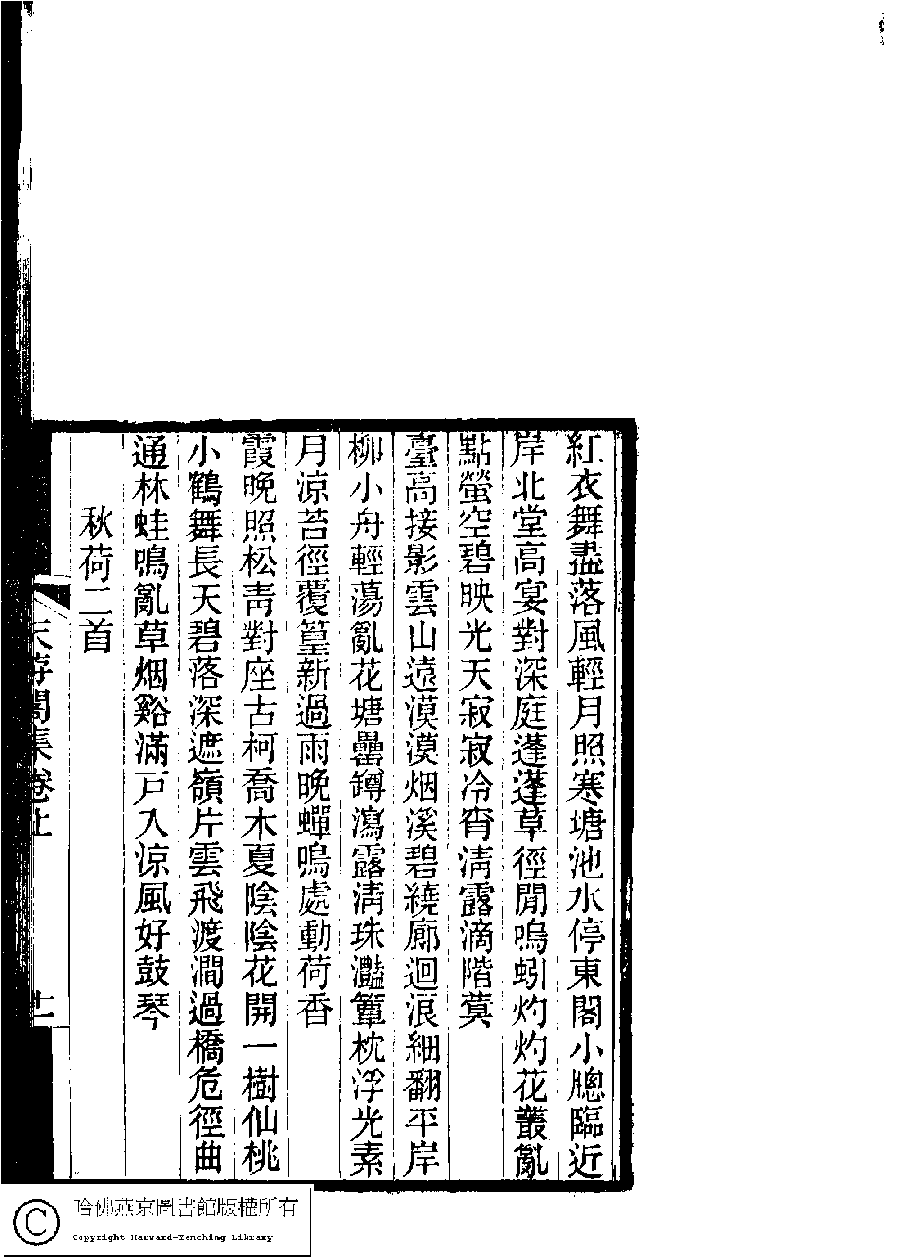 紅衣舞盡落風輕月照寒塘池水停東閣小牕臨近
岸北堂高宴對深庭蓬蓬草徑閒鳴蚓灼灼花叢亂
點螢空碧映光天寂寂冷宵清露滴階蓂
臺高接影雲山遠漠漠烟溪碧繞廊迴浪細翻平岸
柳小舟輕蕩亂花塘罍罇瀉露清珠灩簟枕浮光素
月涼苔徑覆篁新過雨晚蟬鳴處動荷香
霞晚照松青對座古柯喬木夏陰陰花開一樹仙桃
小鶴舞長天碧落深遮嶺片雲飛渡澗過橋危徑曲
通林蛙鳴亂草烟谿滿戶入涼風好鼓琴
秋荷二首
天游閣集卷上
十一
哈佛燕京圖書館版權所有
Copyright Harvard-Yenching Library